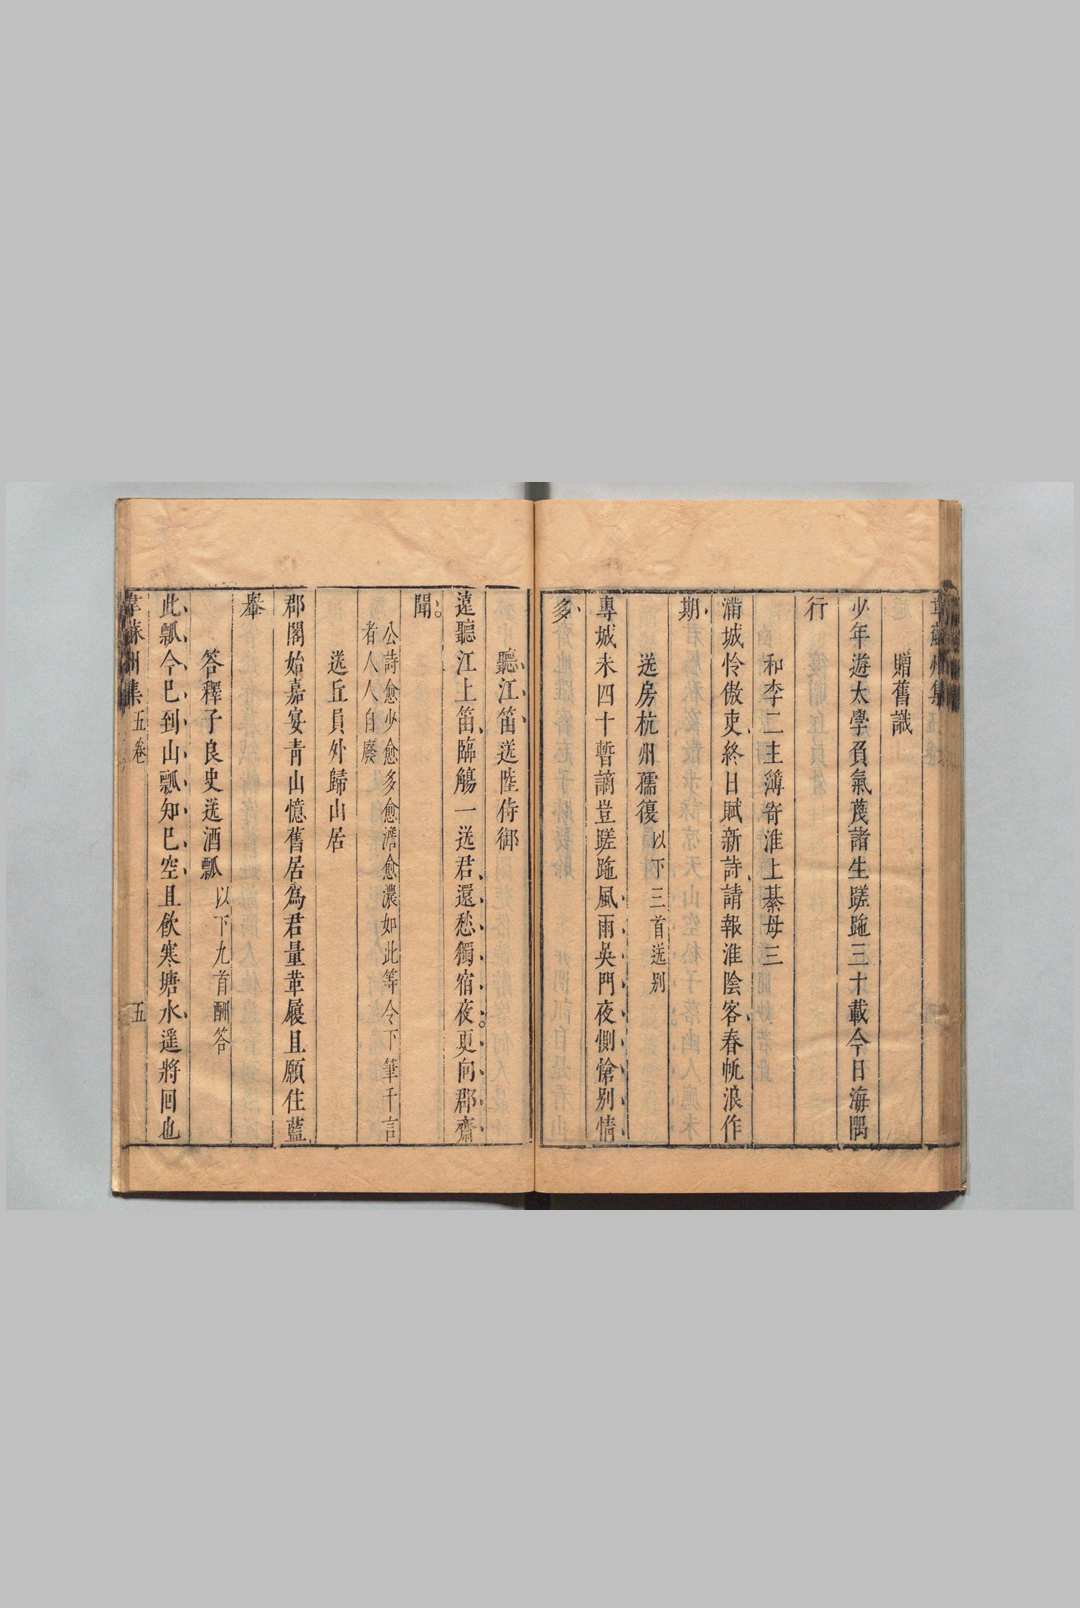 贈舊識
少年遊太學負氣蔑諸生蹉跎三十載今日海隅
行
和李二主簿寄淮上綦毋三
滿城怜傲吏終日賦新詩請報淮陰客春帆浪作
期
送房杭州孺復以下三首送别
專城未四十暫謫豈蹉跎風雨吳門夜惻愴别情
多
聽江笛送陸侍御
遠聽江上笛臨觴一送君還愁獨宿夜更向郡齋
聞
公詩愈少愈多愈澹愈濃如此等令下筆千言
者人人自廢
送丘員外歸山居
郡閣始嘉宴青山憶舊居為君量革履且願住藍
轝
答釋子良史送酒瓢以下九首酬答
此瓢今已到山瓢知已空且飲寒塘水遥將回也
韋蘇州集 五卷 五